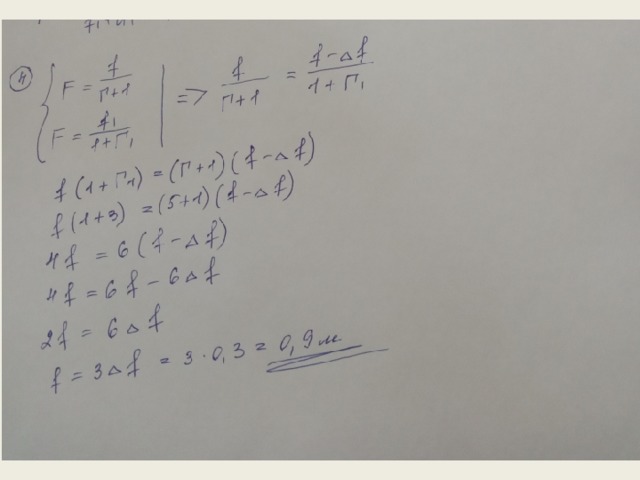 4) { F = f/(Г+1)
F = f₁/(1+Г₁) | => f/(Г+1) = (f-Δf)/(1+Г₁)
f(1+Г₁) = (Г+1)(f-Δf)
f(1+3) = (5+1)(f-Δf)
4f = 6(f-Δf)
4f = 6f - 6Δf
2f = 6Δf
f = 3Δf = 3·0,3 = 0,9м